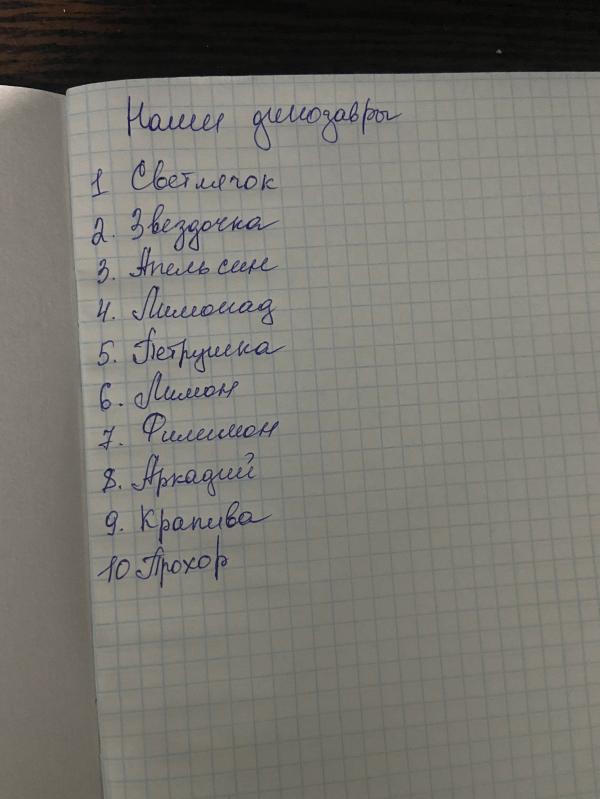 Наши динозавры
1 Светлячок
2. Звездочка
3. Апельсин
4. Лимонад
5. Петрушка
6. Лимон
7. Филимон
8. Аркадий
9. Крапива
10 Прохор